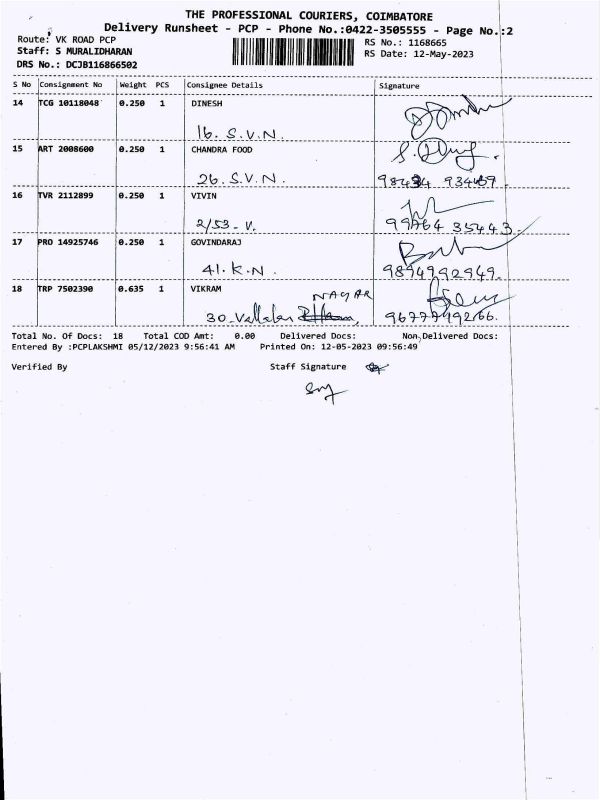 THE PROFESSIONAL COURIERS, COIMBATORE
Delivery Runsheet - PCP - Phone No.:0422-3505555 - Page No.:2
Route: VK ROAD PCP
RS No.: 1168665
Staff: S MURALIDHARAN
RS Date: 12-May-2023
DRS No.: DCJB116866502
S No Consignment No Weight PCS Consignee Details Signature
14 TCG 10118048 0.250 1 DINESH
16. S.V.N.
15 ART 2008600 0.250 1 CHANDRA FOOD
26. S.V.N.
16 TVR 2112899 0.250 1 VIVIN
2/53 - V. 99764 35443
17 PRO 14925746 0.250 1 GOVINDARAJ
41. K.N. 9894992949.
18 TRP 7502390 0.635 1 VIKRAM
NAGAR
30-Vallalar
Total No. Of Docs: 18 Total COD Amt: 0.00 Delivered Docs: Non Delivered Docs:
Entered By :PCPLAKSHMI 05/12/2023 9:56:41 AM Printed On: 12-05-2023 09:56:49
Verified By Staff Signature